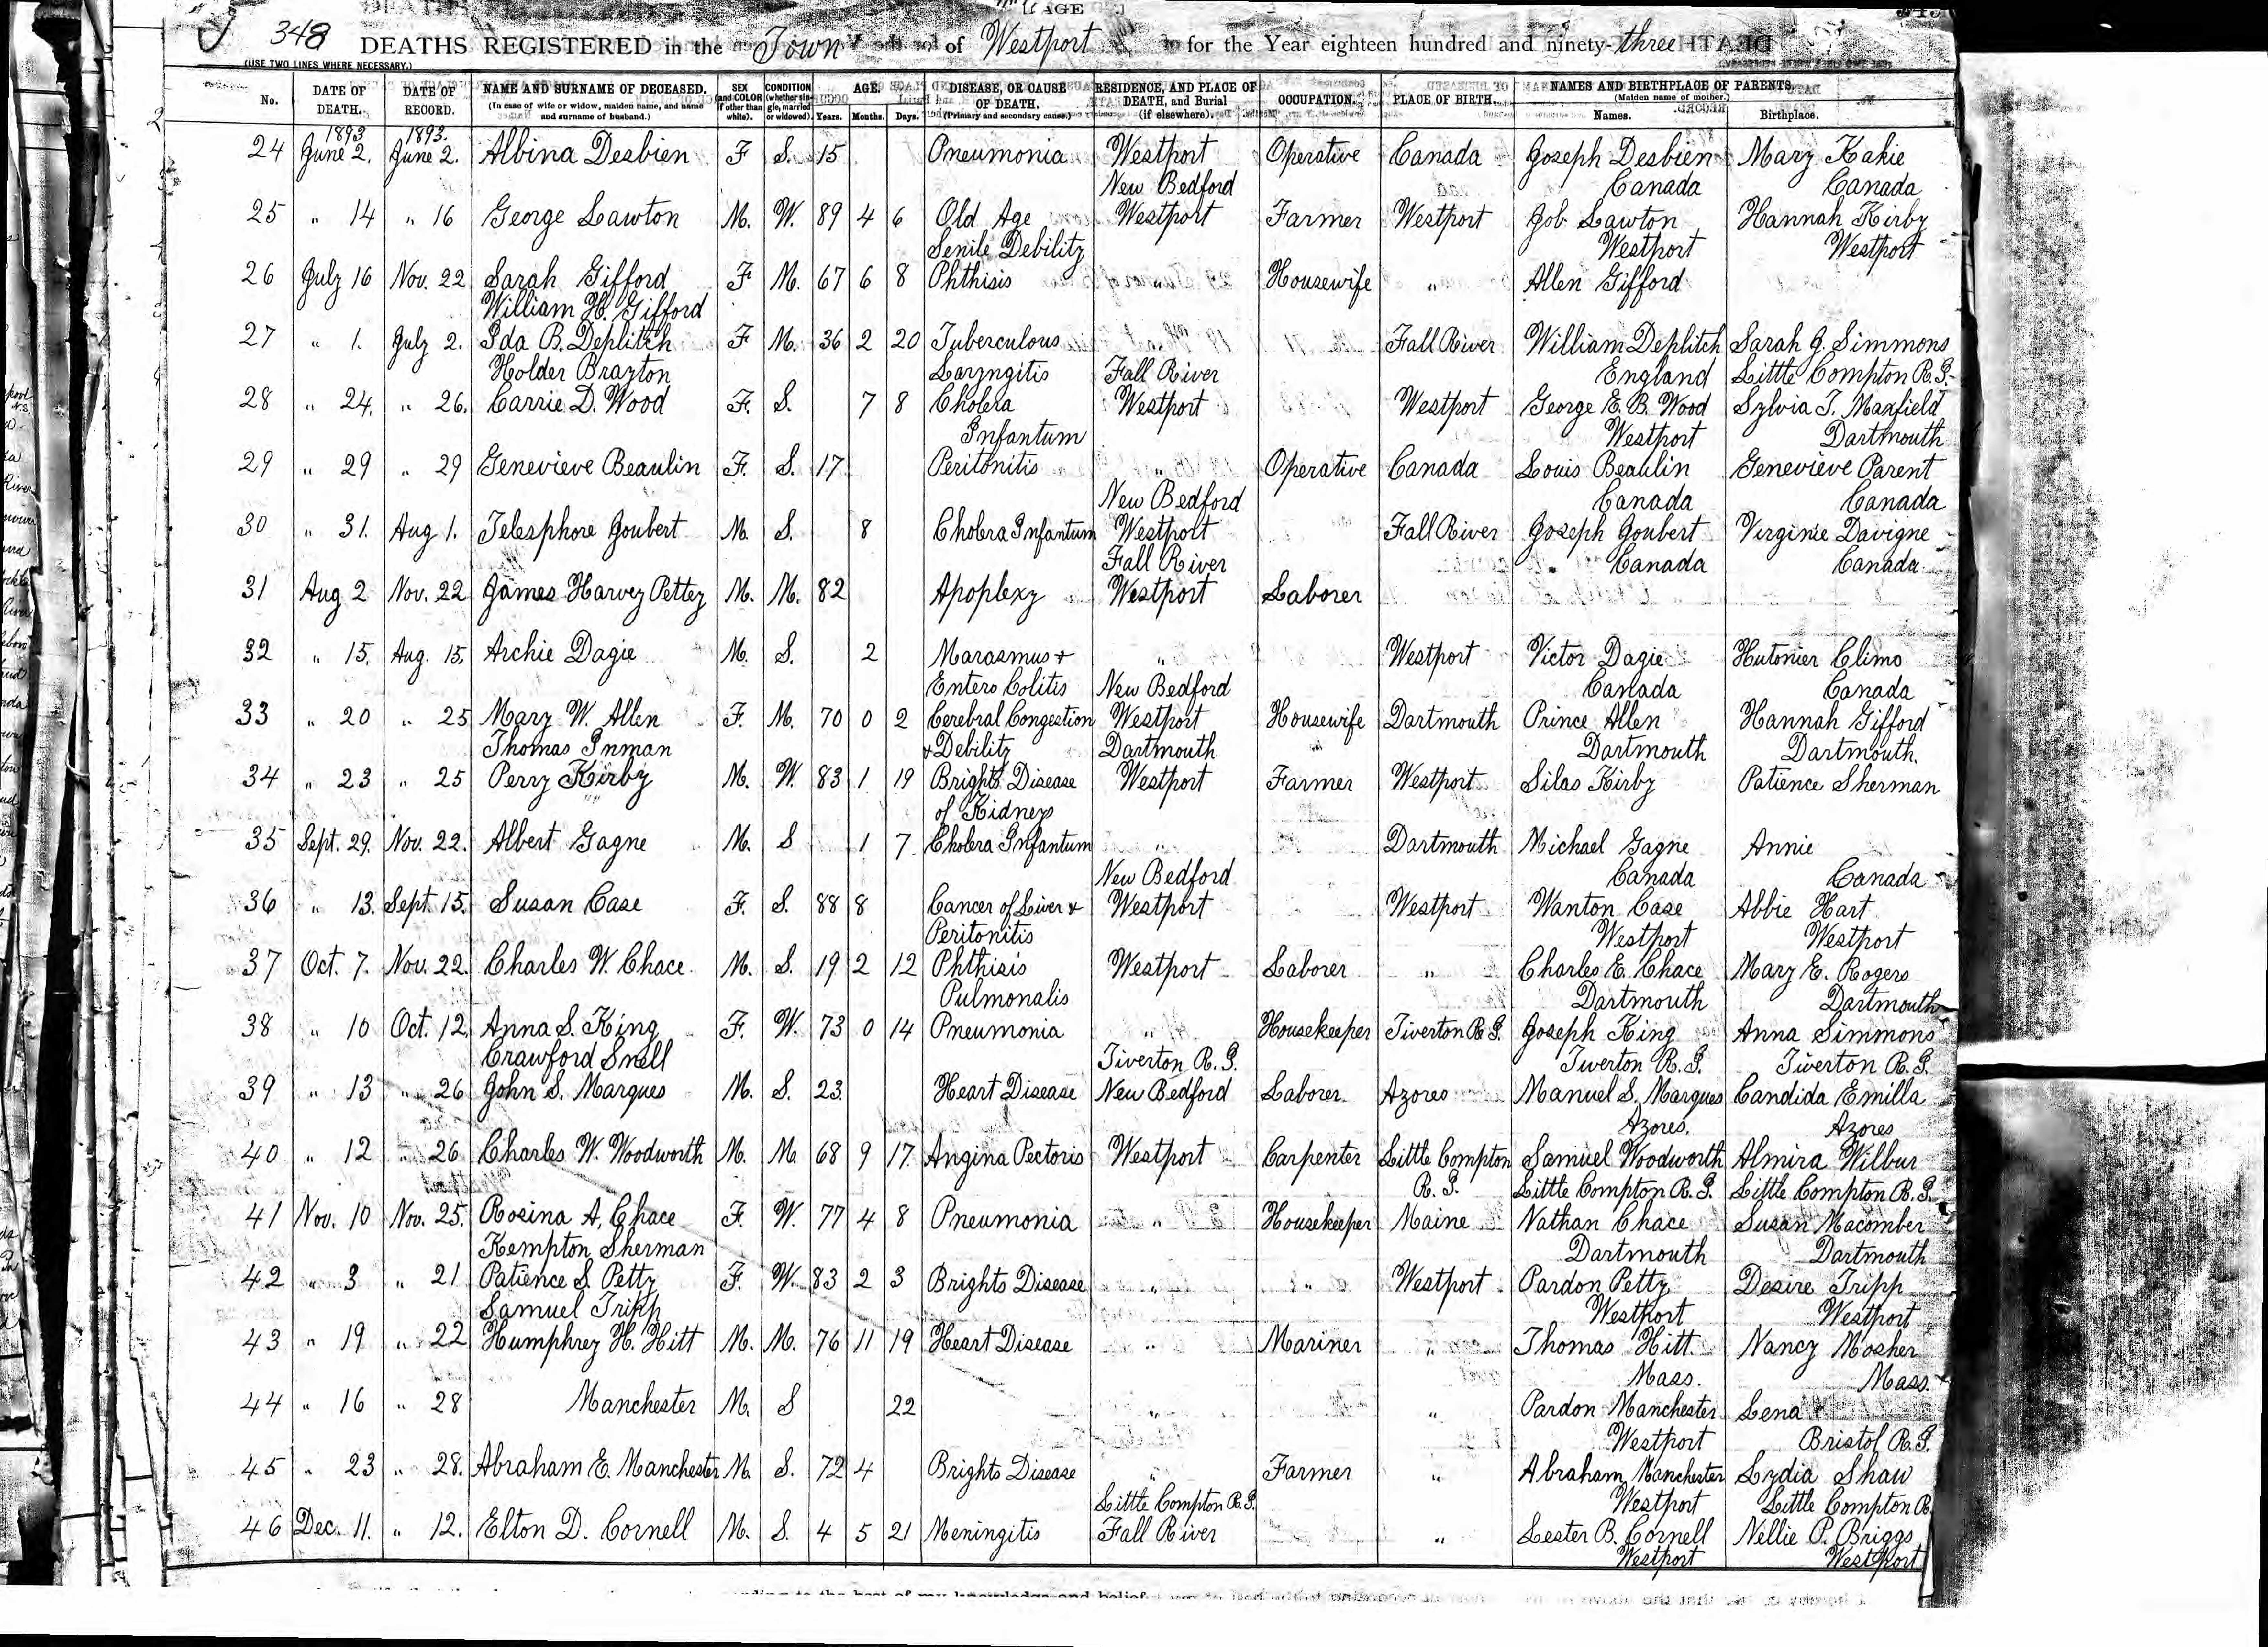 348 DEATHS REGISTERED in the Town of Westport for the Year eighteen hundred and ninety-three
(USE TWO LINES WHERE NECESSARY.)
No. DATE OF DEATH. DATE OF RECORD. NAME AND SURNAME OF DECEASED. (In case of wife or widow, maiden name, and name and surname of husband.) SEX (and COLOR if other than white). CONDITION (whether single, married or widowed). AGE. Years. Months. Days. DISEASE, OR CAUSE OF DEATH. (Primary and secondary cause.) RESIDENCE, AND PLACE OF DEATH, and Burial (if elsewhere). OCCUPATION. PLACE OF BIRTH. NAMES AND BIRTHPLACE OF PARENTS. (Maiden name of mother.) Names. Birthplace.
1893 1893.
24 June 2. June 2. Albina Desbien F S. 15 Pneumonia Westport Operative Canada Joseph Desbien Mary Kakie
New Bedford Canada Canada
25 " 14 " 16 George Lawton M. W. 89 4 6 Old Age Westport Farmer Westport Job Lawton Hannah Kirby
Senile Debility Westport Westport
26 July 16 Nov. 22 Sarah Gifford F M. 67 6 8 Phthisis Housewife " Allen Gifford
William H. Gifford
27 " 1. July 2. Ida B. Deplitch F M. 36 2 20 Tuberculous Fall River William Deplitch Sarah J. Simmons
Holder Brayton Laryngitis Fall River England Little Compton R.I.
28 " 24. " 26. Carrie D. Wood F. S. 7 8 Cholera Westport Westport George E. B. Wood Sylvia T. Maxfield
Infantum Westport Dartmouth
29 " 29 " 29 Genevieve Beaulin F. S. 17 Peritonitis " Operative Canada Louis Beaulin Genevieve Parent
New Bedford Canada Canada
30 " 31. Aug 1. Telesphore Joubert M. S. 8 Cholera Infantum Westport Fall River Joseph Joubert Virginie Davigne
Fall River Canada Canada
31 Aug 2 Nov. 22 James Harvey Pettey M. M. 82 Apoplexy Westport Laborer
32 " 15. Aug. 15. Archie Dagie M. S. 2 Marasmus + " Westport Victor Dagie Hutonier Climo
Entero Colitis New Bedford Canada Canada
33 " 20 " 25 Mary W. Allen F. M. 70 0 2 Cerebral Congestion Westport Housewife Dartmouth Prince Allen Hannah Gifford
Thomas Inman + Debility Dartmouth Dartmouth Dartmouth.
34 " 23 " 25 Perry Kirby M. W. 83 1 19 Brights Disease Westport Farmer Westport Silas Kirby Patience Sherman
of Kidneys
35 Sept. 29. Nov. 22. Albert Gagne M. S 1 7. Cholera Infantum " Dartmouth Michael Gagne Annie
New Bedford Canada Canada
36 " 13. Sept. 15. Susan Case F. S. 88 8 Cancer of Liver + Westport Westport Wanton Case Abbie Hart
Peritonitis Westport Westport
37 Oct. 7. Nov. 22. Charles W. Chace M. S. 19 2 12 Phthisis Westport Laborer " Charles E. Chace Mary E. Rogers
Pulmonalis Dartmouth Dartmouth
38 " 10 Oct. 12 Anna S. King F. W. 73 0 14 Pneumonia " Housekeeper Tiverton R.I. Joseph King Anna Simmons
Crawford Snell Tiverton R.I. Tiverton R.I. Tiverton R.I.
39 " 13 " 26 John S. Marques M. S. 23 Heart Disease New Bedford Laborer. Azores Manuel S. Marques Candida Emilla
Azores. Azores
40 " 12 " 26 Charles W. Woodworth M. M. 68 9 17 Angina Pectoris Westport Carpenter Little Compton Samuel Woodworth Almira Wilbur
R.I. Little Compton R.I. Little Compton R.I.
41 Nov. 10 Nov. 25. Rosina A. Chace F. W. 77 4 8 Pneumonia " Housekeeper Maine Nathan Chace Susan Macomber
Kempton Sherman Dartmouth Dartmouth
42 " 3 " 21 Patience S. Petty F. W. 83 2 3 Brights Disease " " Westport Pardon Petty Desire Tripp
Samuel Tripp Westport Westport
43 " 19 " 22 Humphrey H. Hitt M. M. 76 11 19 Heart Disease " Mariner " Thomas Hitt. Nancy Mosher
Mass. Mass.
44 " 16 " 28 Manchester M. S 22 " " Pardon Manchester Lena
Westport Bristol R.I.
45 " 23 " 28. Abraham E. Manchester M. S. 72 4 Brights Disease " Farmer " Abraham Manchester Lydia Shaw
Little Compton R.I. Westport Little Compton R.
46 Dec. 11. " 12. Elton D. Cornell M. S. 4 5 21 Meningitis Fall River " Lester B. Cornell Nellie P. Briggs
Westport Westport